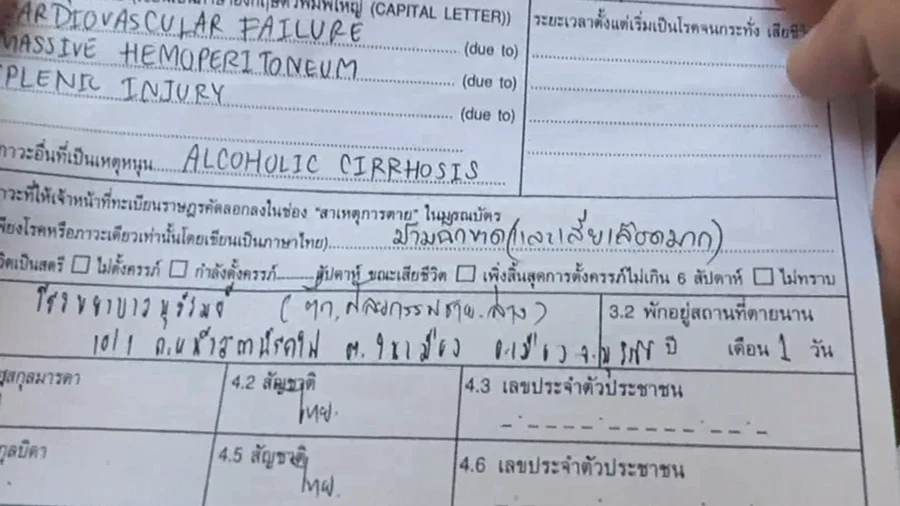 (CAPITAL LETTER))
ระยะเวลาตั้งแต่เริ่มเป็นโรคจนกระทั่ง เสียชีวิ
ARDIOVASCULAR FAILURE (due to)
MASSIVE HEMOPERITONEUM (due to)
PLENIC INJURY (due to)
ภาวะอื่นที่เป็นเหตุหนุน ALCOHOLIC CIRRHOSIS
าวะที่ให้เจ้าหน้าที่ทะเบียนราษฎรคัดลอกลงในช่อง "สาเหตุการตาย" ในมรณบัตร
พียงโรคหรือภาวะเดียวเท่านั้นโดยเขียนเป็นภาษาไทย) ม้ามฉีกขาด(และเสียเลือดมาก)
วิตเป็นสตรี ไม่ตั้งครรภ์ กำลังตั้งครรภ์ สัปดาห์ ขณะเสียชีวิต เพิ่งสิ้นสุดการตั้งครรภ์ไม่เกิน 6 สัปดาห์ ไม่ทราบ
โรงพยาบาลบุรีรัมย์ (ตึก ศัลยกรรมชาย.ล่าง)
3.2 พักอยู่สถานที่ตายนาน
10/1 ถ.หน้าสถานีรถไฟ ต.ในเมือง อ.เมือง จ.บุรีรัมย์ ปี เดือน 1 วัน
สกุลมารดา
4.2 สัญชาติ
ไทย.
4.3 เลขประจำตัวประชาชน
กุลบิดา
4.5 สัญชาติ
ไทย.
4.6 เลขประจำตัวประชาชน